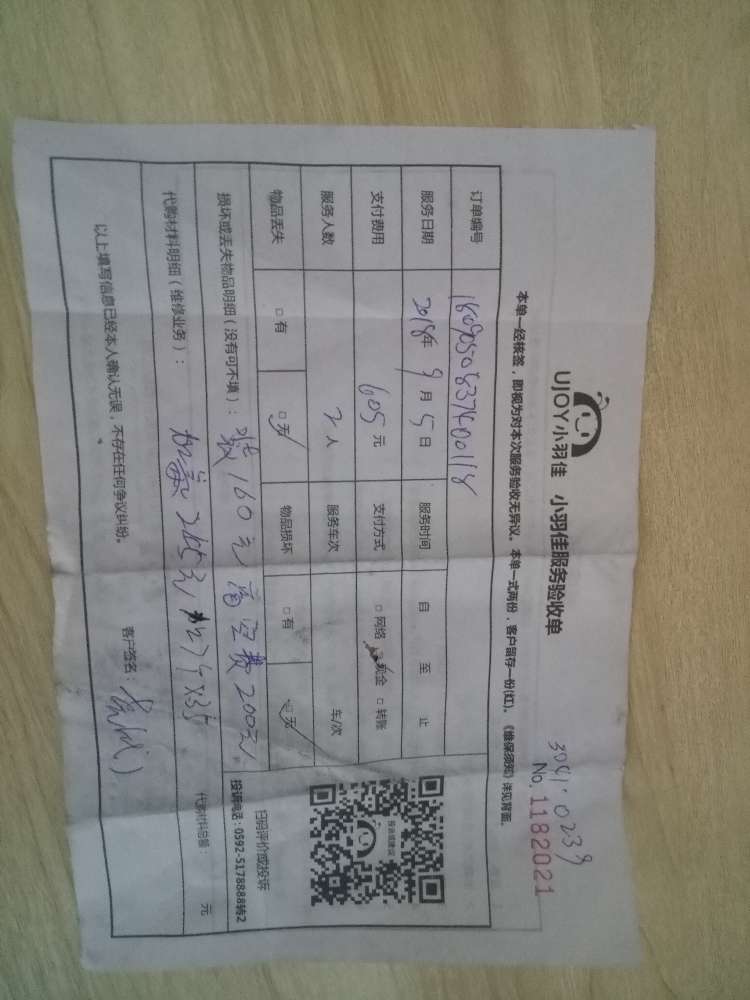 3041·0239
No. 1182021
UJOY小羽佳 小羽佳服务验收单
本单一经核签，即视为对本次服务验收无异议。本单一式两份，客户留存一份(红)。《维保须知》详见背面。
订单编号
服务日期 2018年 9月 5日 服务时间 自 至 止
支付费用 605元 支付方式 □网络 现金 □转账
服务人数 2人 服务车次 车/次
物品丢失 □有 □无 物品损坏 □有 □无
扫码评价或投诉
投诉电话：0592-5178888转2
损坏或丢失物品明细（没有可不填）： 160元 高空费200元
代购材料明细（维修业务）： 245元 代购材料总额： 元
以上填写信息已经本人确认无误，不存在任何争议纠纷。 客户签名：